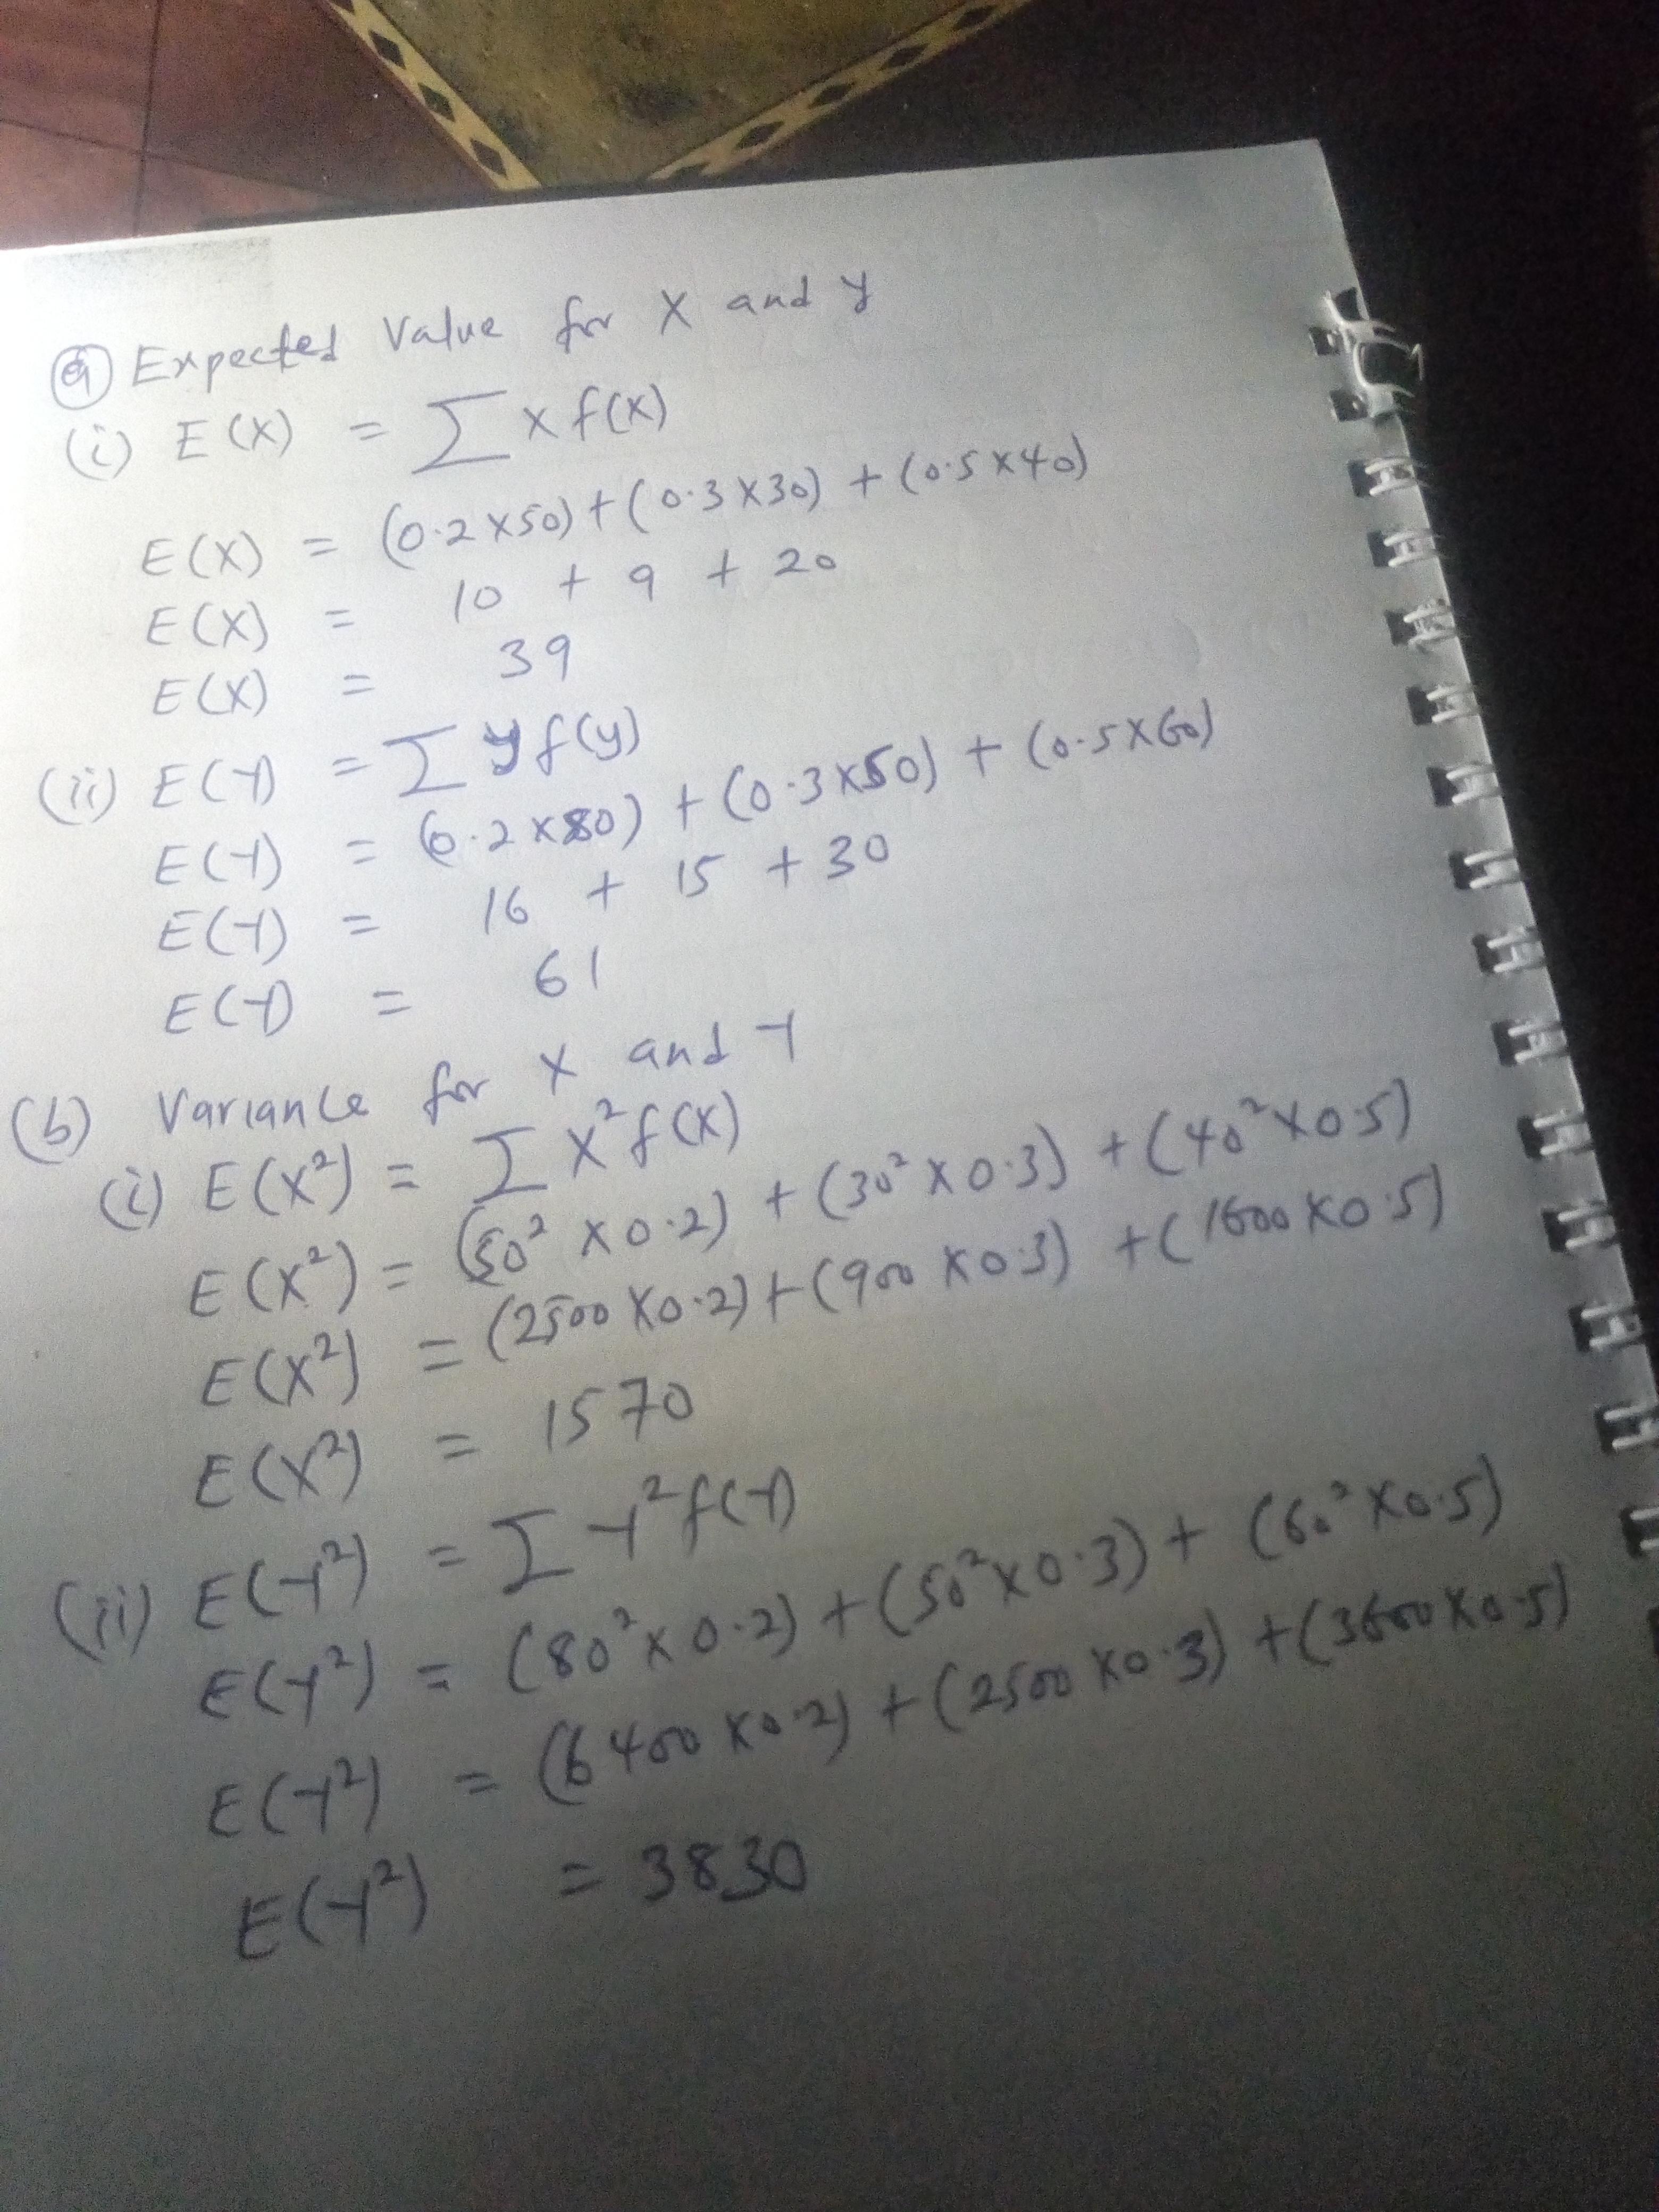 (a) Expected Value for X and Y
(i) E(X) = ∑ x f(x)
E(X) = (0.2 x 50) + (0.3 x 30) + (0.5 x 40)
E(X) = 10 + 9 + 20
E(X) = 39
(ii) E(Y) = ∑ y f(y)
E(Y) = (0.2 x 80) + (0.3 x 50) + (0.5 x 60)
E(Y) = 16 + 15 + 30
E(Y) = 61
(b) Variance for X and Y
(i) E(X²) = ∑ X² f(X)
E(X²) = (50² x 0.2) + (30² x 0.3) + (40² x 0.5)
E(X²) = (2500 x 0.2) + (900 x 0.3) + (1600 x 0.5)
E(X²) = 1570
(ii) E(Y²) = ∑ Y² f(Y)
E(Y²) = (80² x 0.2) + (50² x 0.3) + (60² x 0.5)
E(Y²) = (6400 x 0.2) + (2500 x 0.3) + (3600 x 0.5)
E(Y²) = 3830